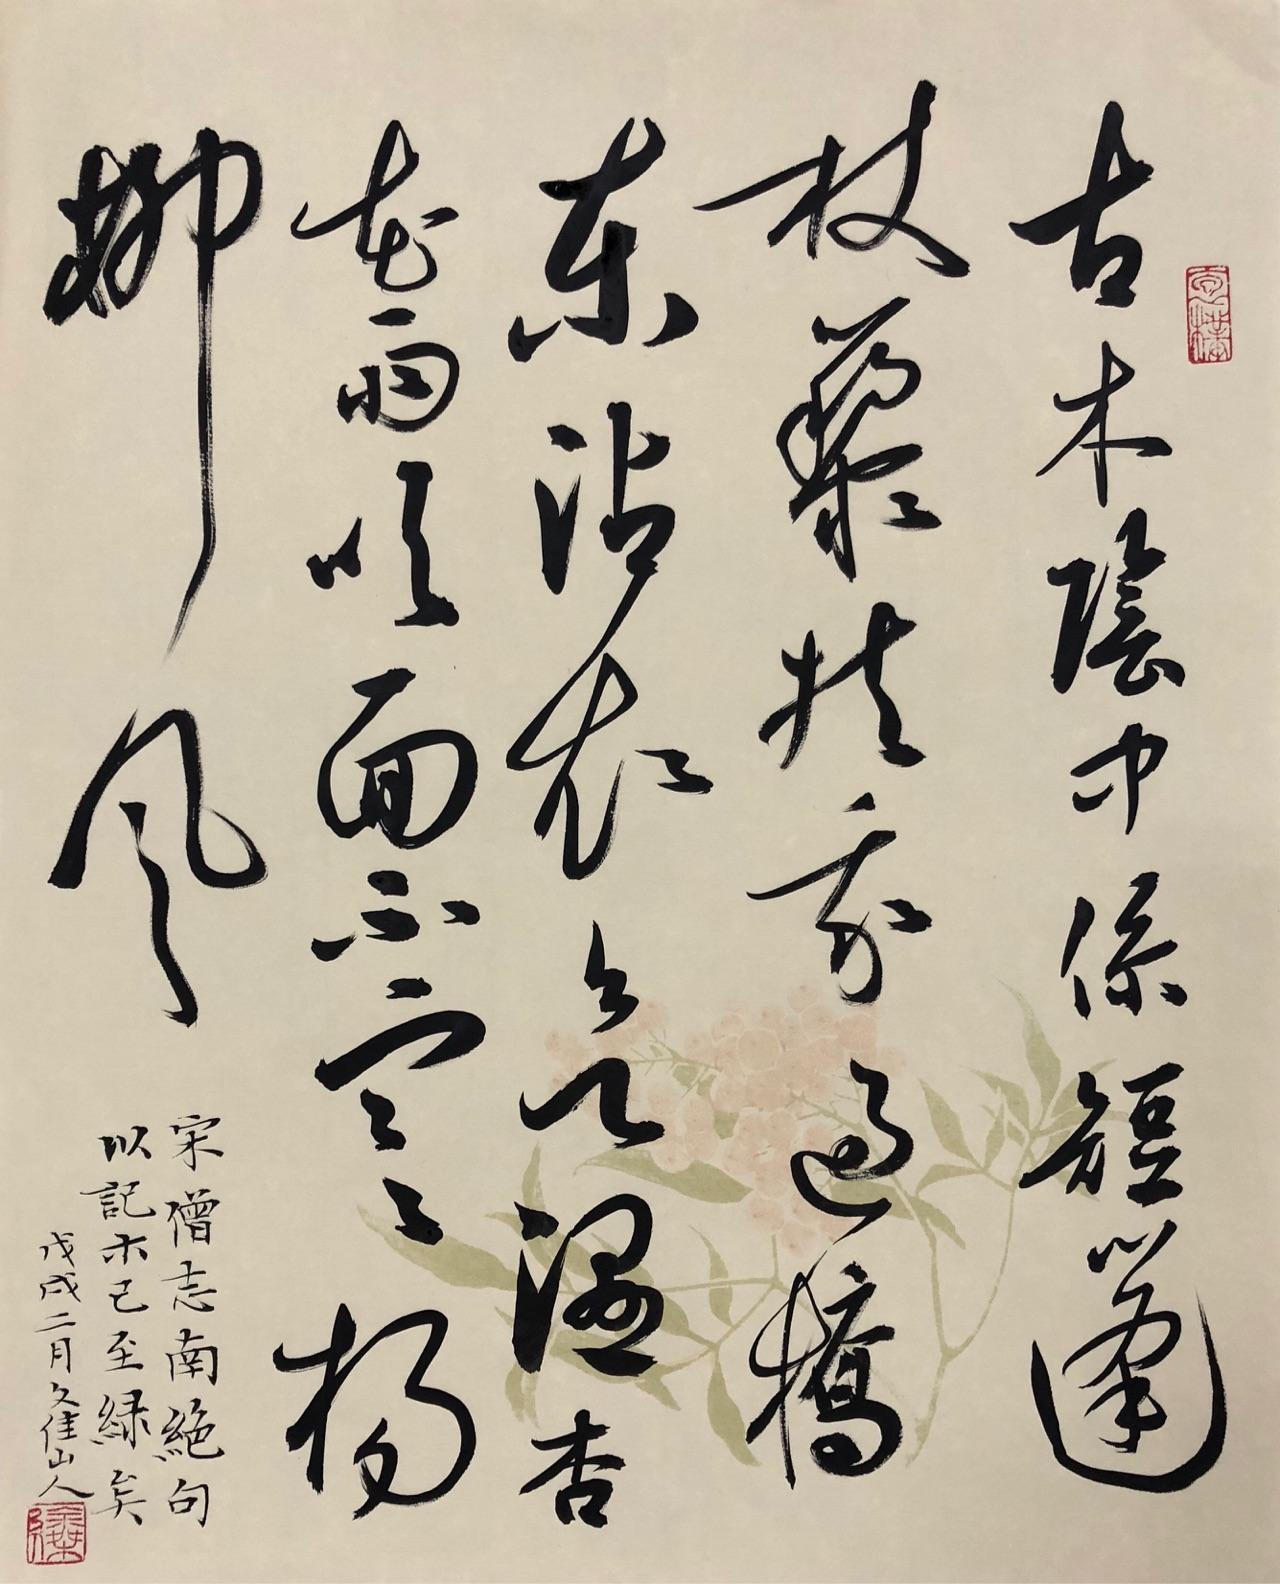 古木陰中係短篷
杖藜扶我過橋
東沾衣欲濕杏
花雨吹面不寒楊
柳風
宋僧志南絕句
以記木已至緑矣
戊戌二月文佳山人